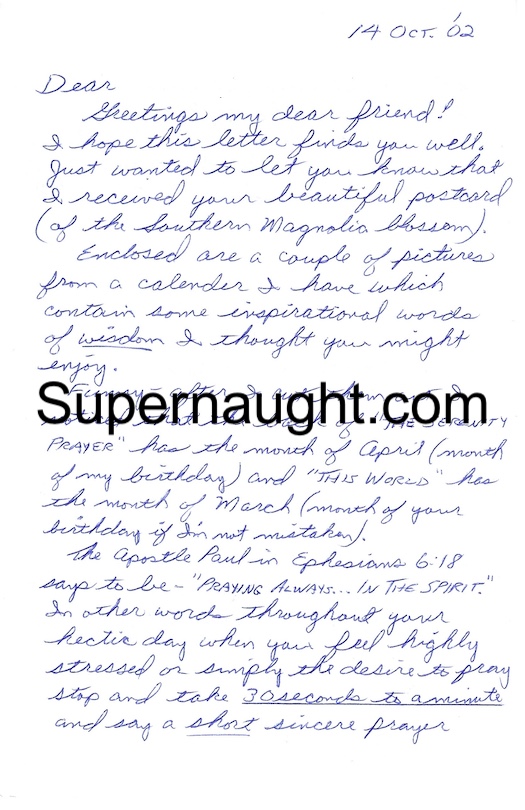 14 OCT. '02
Dear
Greetings my dear friend!
I hope this letter finds you well.
Just wanted to let you know that
I received your beautiful postcard
(of the Southern Magnolia blossom).
Enclosed are a couple of pictures
from a calender I have which
contain some inspirational words
of wisdom I thought you might
enjoy.
Funny - after I
Supernaught.com
PRAYER" has the month of April (month
of my birthday) and "THIS WORLD" has
the month of March (month of your
birthday if I'm not mistaken).
The Apostle Paul in Ephesians 6:18
says to be - "PRAYING ALWAYS... IN THE SPIRIT."
In other words throughout your
hectic day when you feel highly
stressed or simply the desire to pray
stop and take 30 seconds to a minute
and say a short sincere prayer